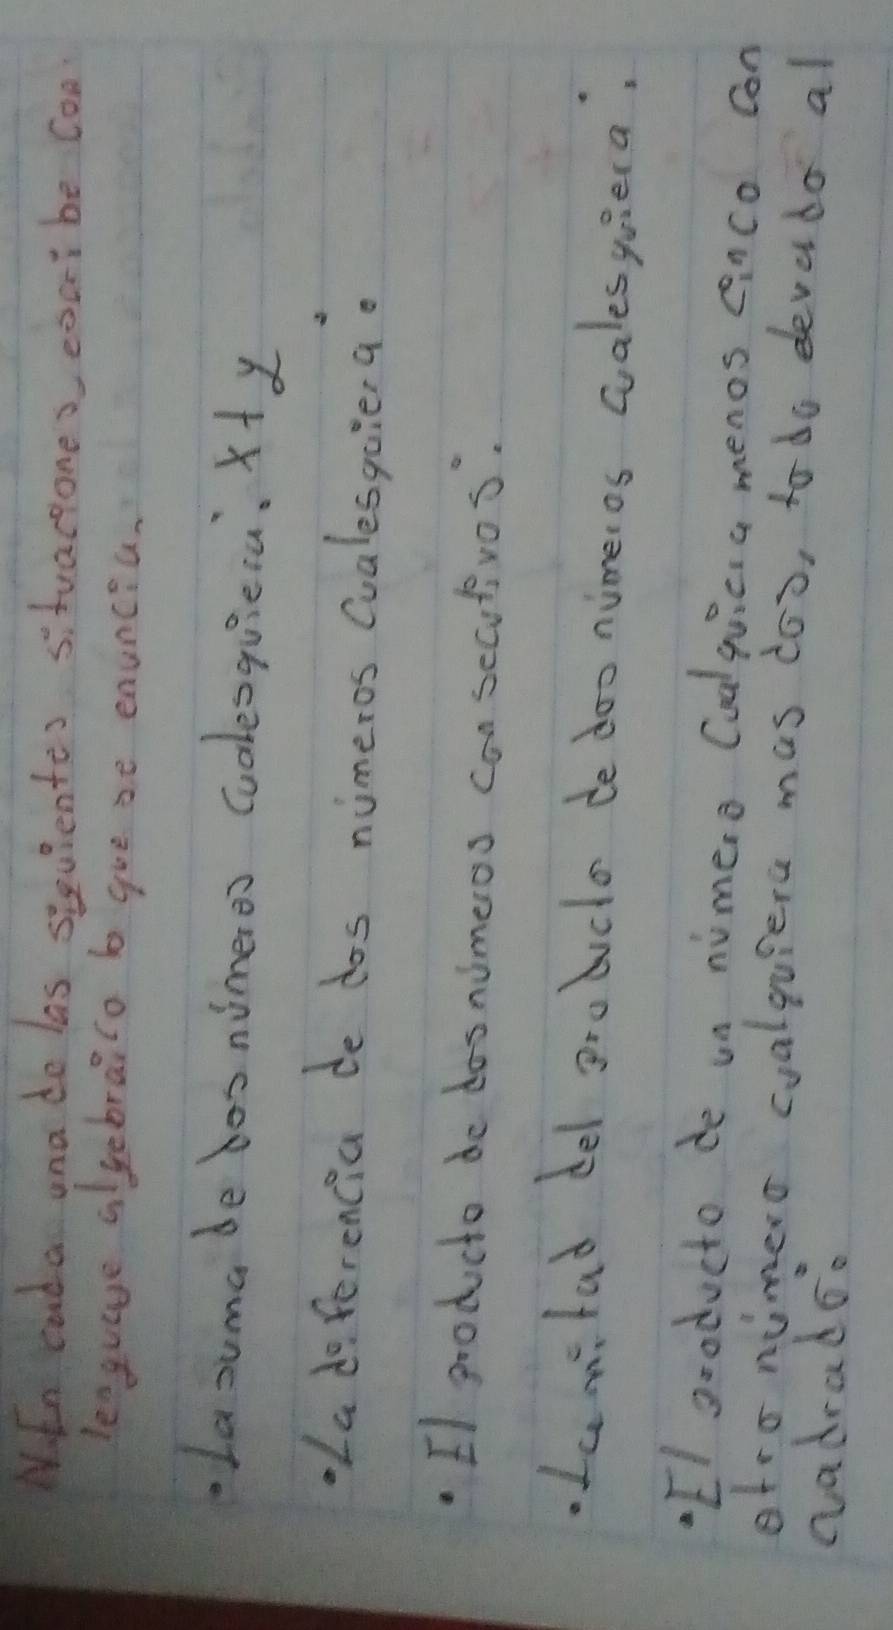 N. En cada una de las siguientes situaciones, escribe con
lenguaje algebraico lo que se enuncia.
• La suma de dos números cualesquiera: x + y
• La diferencia de dos números cualesquiera:
• El producto de dos números consecutivos:
• La mitad del producto de dos números cualesquiera:
• El producto de un número cualquiera menos cinco con
otro número cualquiera mas dos, todo elevado al
cuadrado: